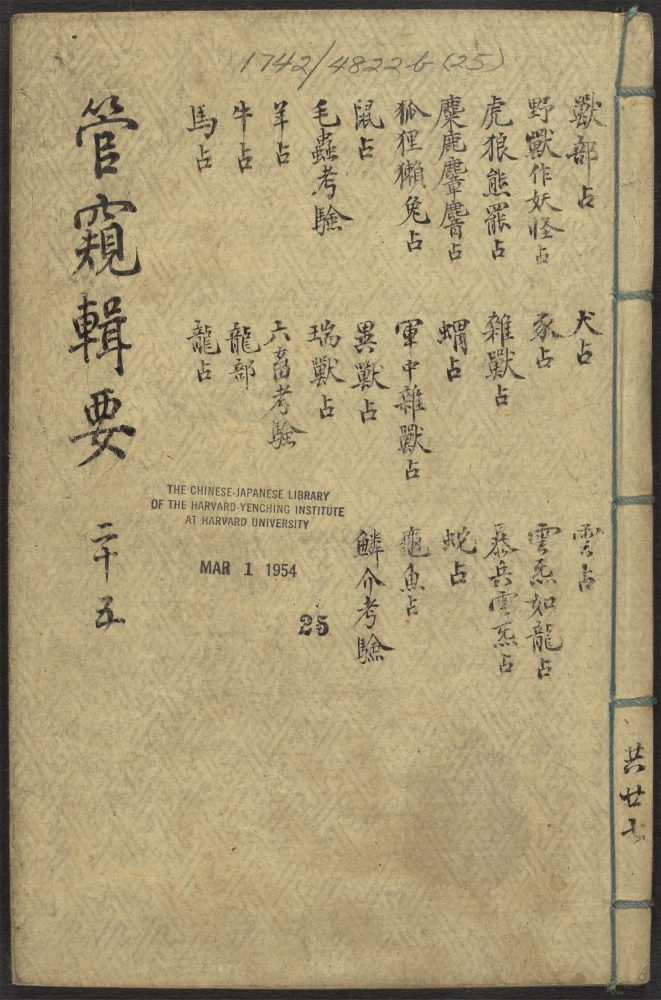 1742/4822b (25)
獸部占
野獸作妖怪占
虎狼熊羆占
麋鹿麞麝占
狐狸獺兔占
鼠占
毛蟲考驗
羊占
牛占
馬占
犬占
豕占
雜獸占
蝟占
軍中雜獸占
異獸占
瑞獸占
六畜考驗
龍部
龍占
雲占
雲炁如龍占
暴兵雲炁占
蛇占
龜魚占
鱗介考驗
管窺輯要 二十五
THE CHINESE-JAPANESE LIBRARY
OF THE HARVARD-YENCHING INSTITUTE
AT HARVARD UNIVERSITY
MAR 1 1954
25
共廿七